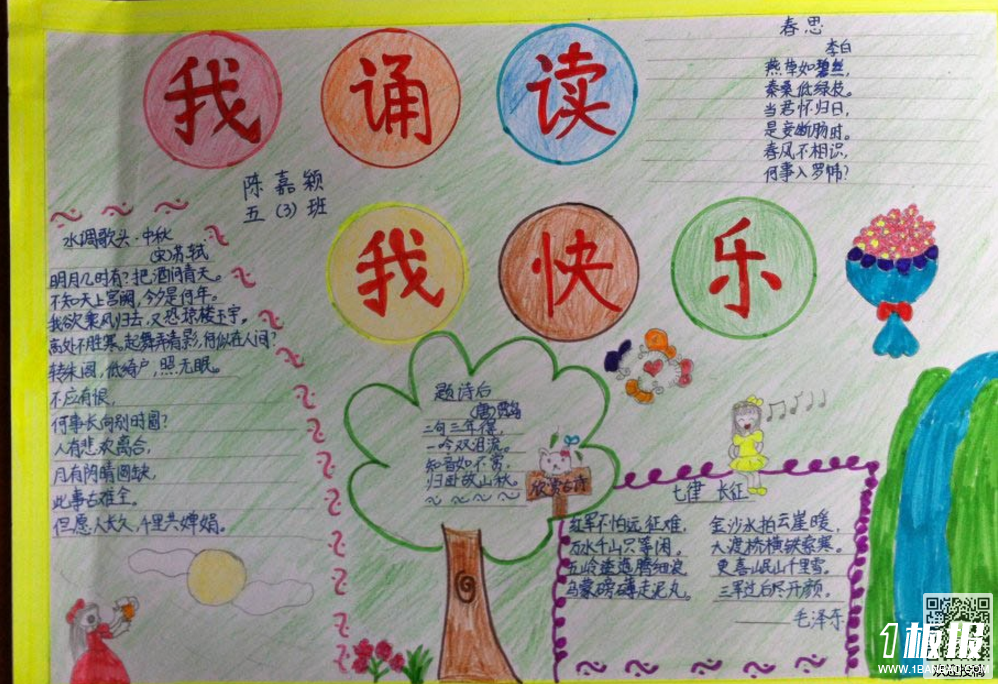 我诵读
我快乐
陈嘉颖
五(3)班
春思
李白
燕草如碧丝,
秦桑低绿枝。
当君怀归日,
是妾断肠时。
春风不相识,
何事入罗帏?
水调歌头·中秋
(宋)苏轼
明月几时有?把酒问青天。
不知天上宫阙,今夕是何年。
我欲乘风归去,又恐琼楼玉宇,
高处不胜寒。起舞弄清影,何似在人间?
转朱阁,低绮户,照无眠。
不应有恨,
何事长向别时圆?
人有悲欢离合,
月有阴晴圆缺,
此事古难全。
但愿人长久,千里共婵娟。
题诗后
(唐)贾岛
二句三年得,
一吟双泪流。
知音如不赏,
归卧故山秋。
欣赏古诗
七律 长征
红军不怕远征难, 金沙水拍云崖暖,
万水千山只等闲。 大渡桥横铁索寒。
五岭逶迤腾细浪 更喜岷山千里雪。
乌蒙磅礴走泥丸, 三军过后尽开颜。
——毛泽东
1板报
WWW.1BANBAO.COM
欢迎投稿